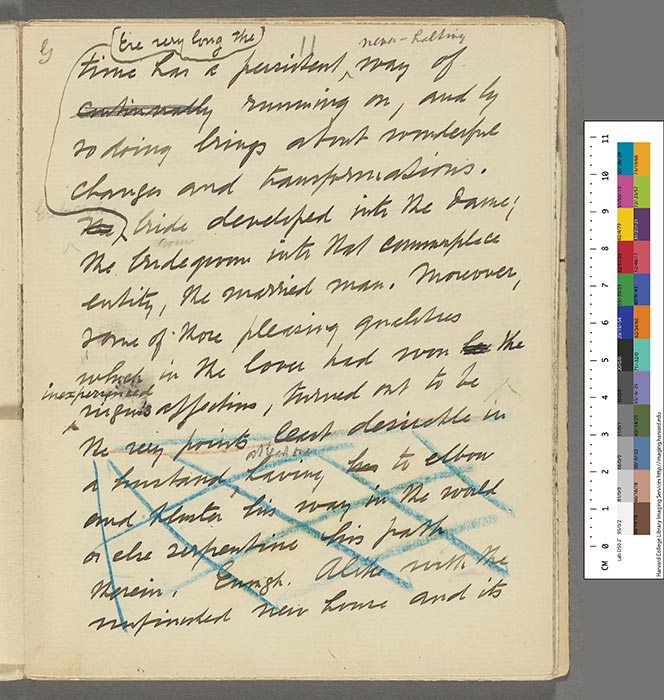 (Ere very long the)
never-halting
time has a persistent way of
continually running on, and by
so doing brings about wonderful
changes and transformations.
The bride developed into the Dame;
the bridegroom into that commonplace
entity, the married man. Moreover,
some of those pleasing qualities
which in the lover had won the
inexperienced
virgin's affections, turned out to be
the very points least desirable in
a husband, having to elbow
and fluster his way in the world
or else serpentine his path
therein. Enough. Alike with the
unfinished new house and its
CM 0 1 2 3 4 5 6 7 8 9 10 11
Harvard College Library Imaging Services http://imaging.harvard.edu